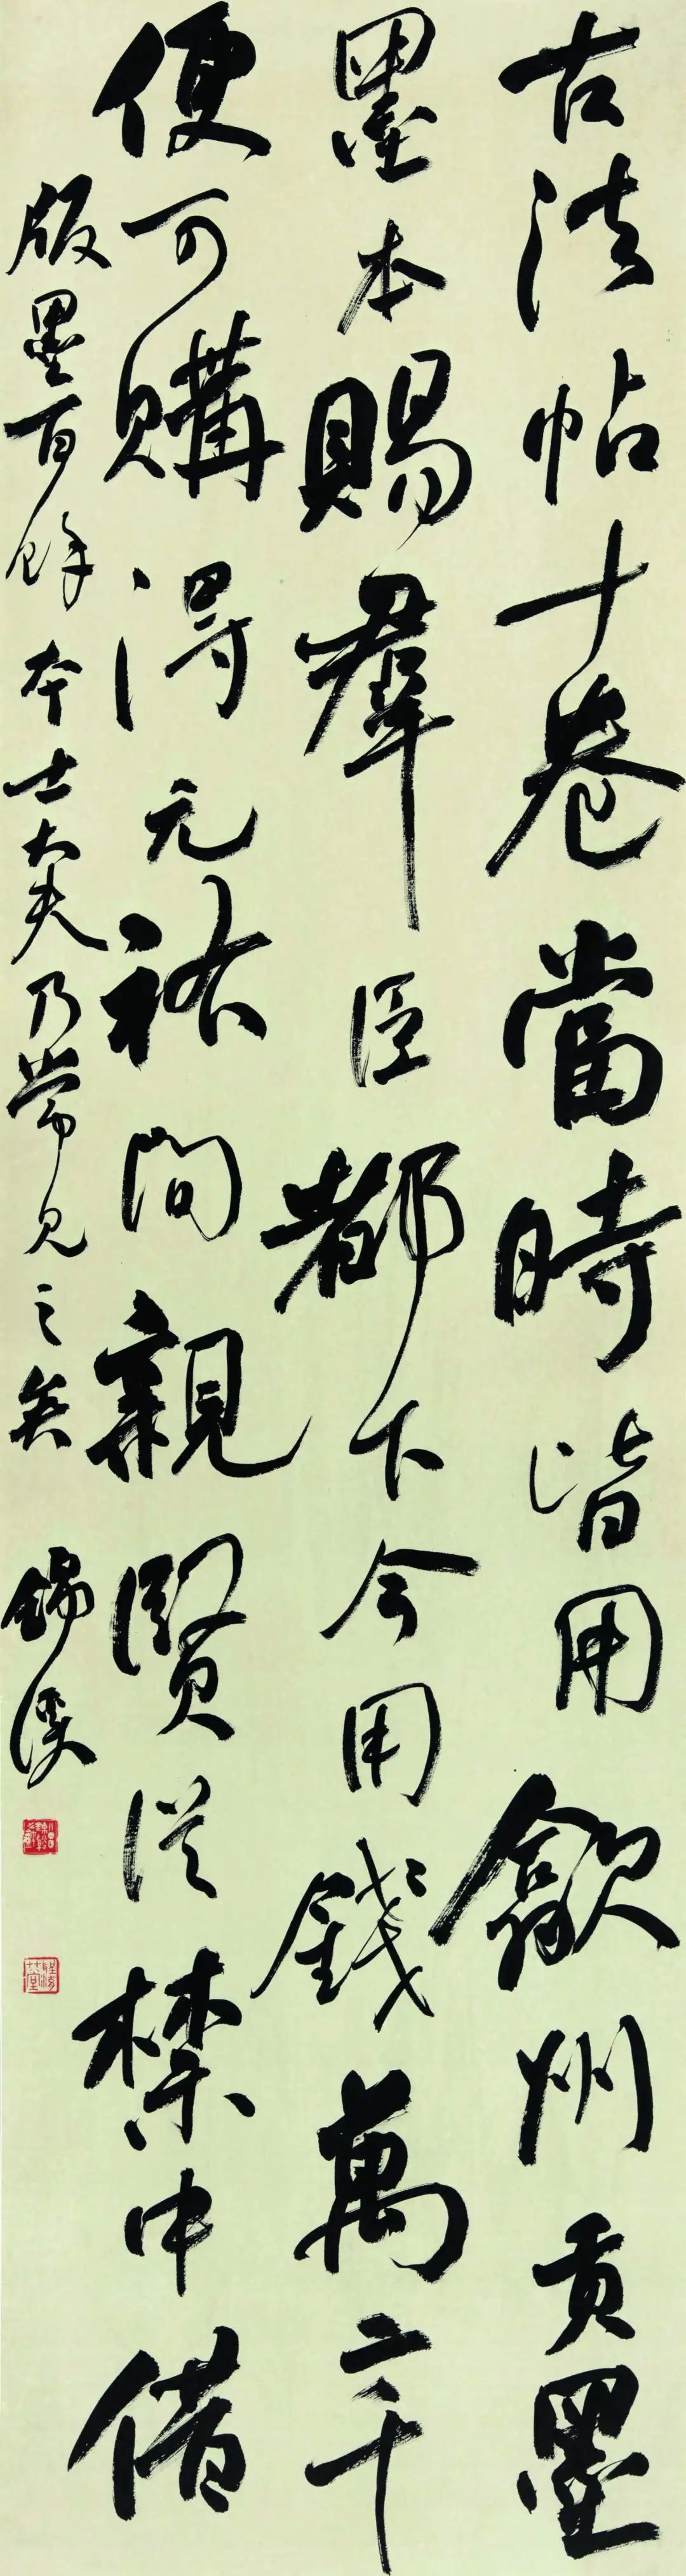 古法帖十卷當時皆用歙州貢墨
墨本賜群臣都下今用錢萬二千
便可購得元祐間親賢從禁中借
版墨百餘本士大夫乃常見之矣 錫溪